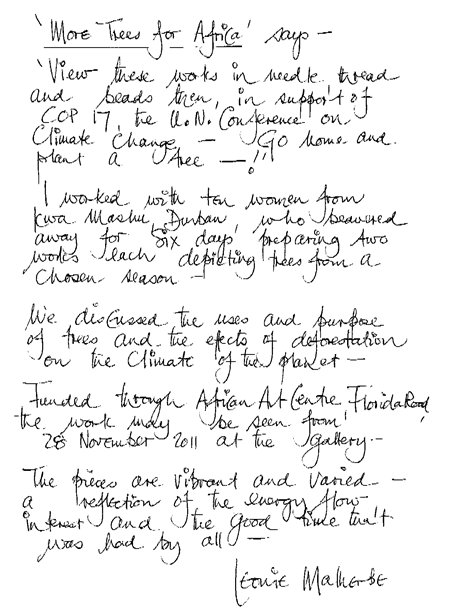 'More Trees for Africa' says —
'View these works in needle, thread
and beads then, in support of
COP 17, the U.N. Conference on
Climate Change — Go home and
plant a tree —!!'
I worked with ten women from
Kwa Mashu, Durban, who beavered
away for six days, preparing two
works each depicting trees from a
chosen season —
We discussed the uses and purpose
of trees and the efects of deforestation
on the Climate of the planet —
Funded through African Art Centre, Florida Road,
the work may be seen from
28 November 2011 at the gallery —
The pieces are vibrant and varied —
a reflection of the energy flow
interest and the good time that
was had by all —
Leonie Malherbe